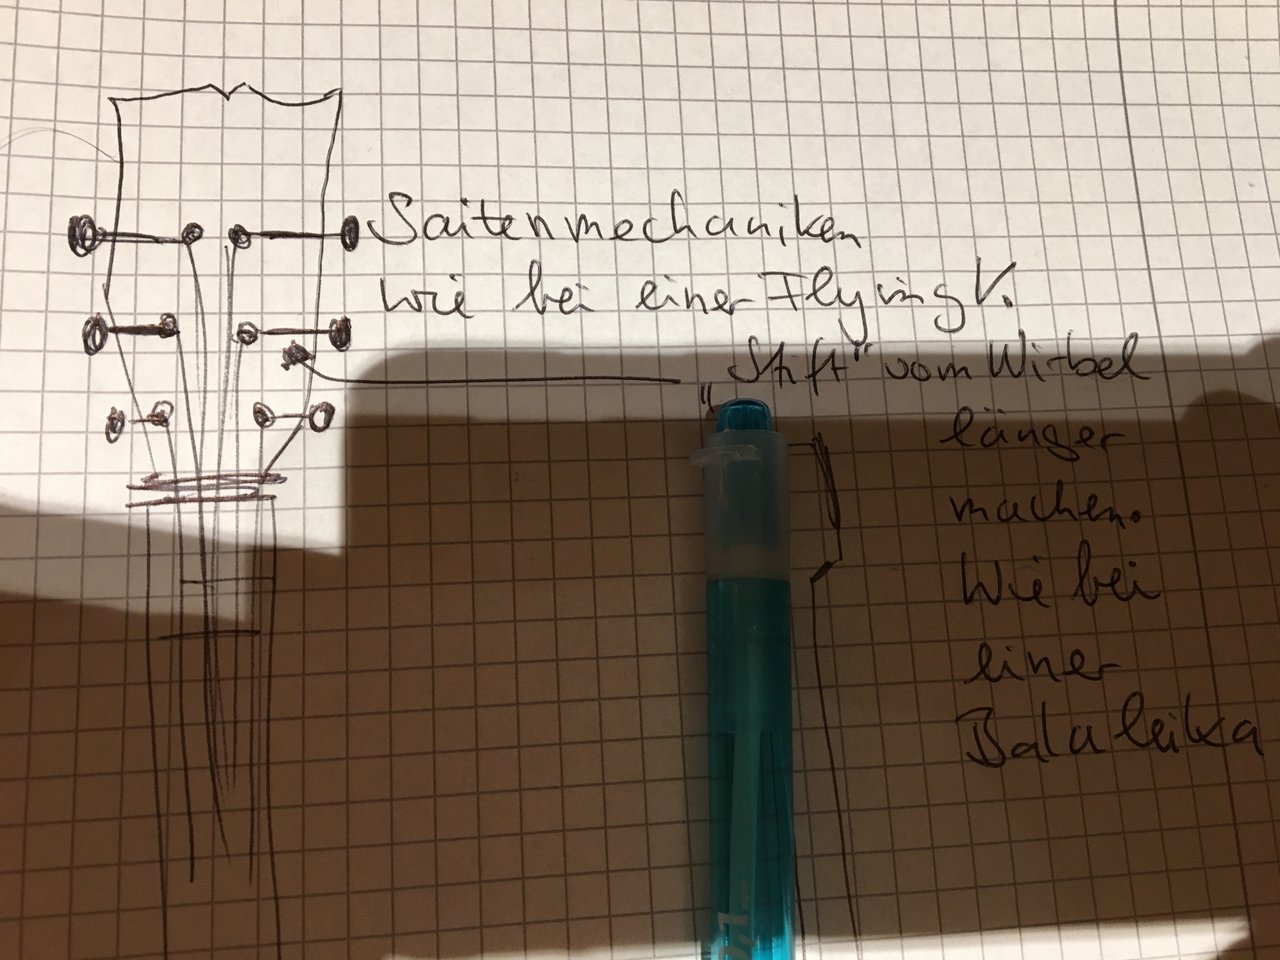 Saitenmechaniken
wie bei einer Flying V.
"Stift" vom Wirbel
länger
machen.
Wie bei
einer
Balaleika